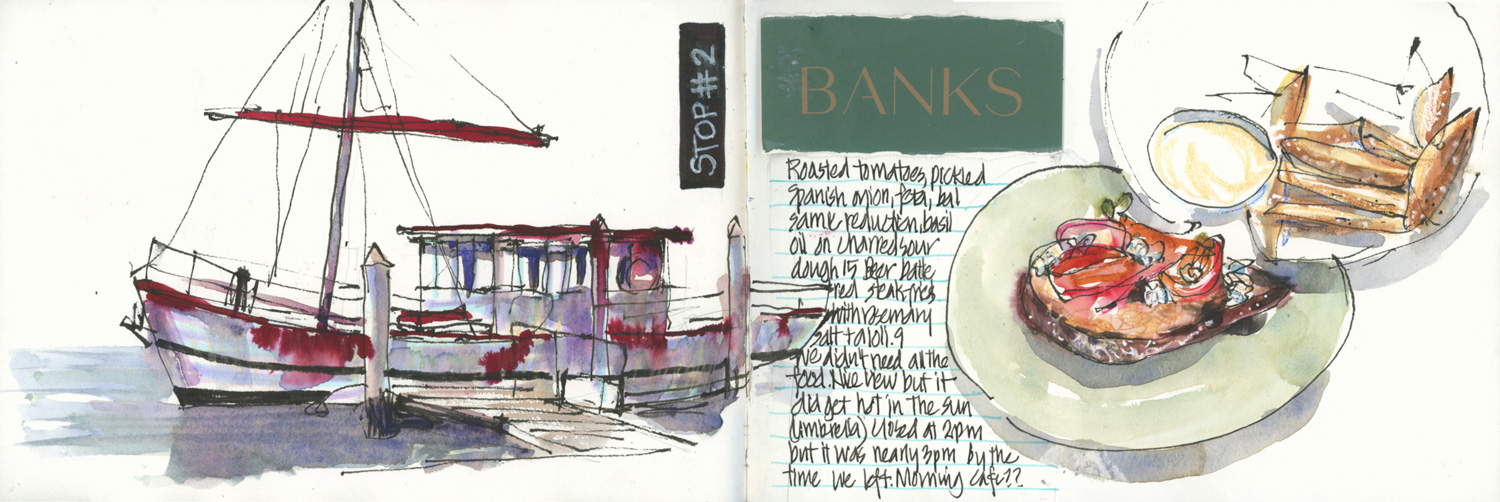 STOP #2
BANKS
Roasted tomatoes, pickled
Spanish onion, feta, bal
samic reduction, basil
oil on charred sour
dough 15 Beer batte
red steak fries
with rosemary
salt + aioli. 9
We didn't need all the
food. Nice view but it
did get hot in the sun
(umbrella) Closed at 2pm
but it was nearly 3pm by the
time we left. Morning cafe??